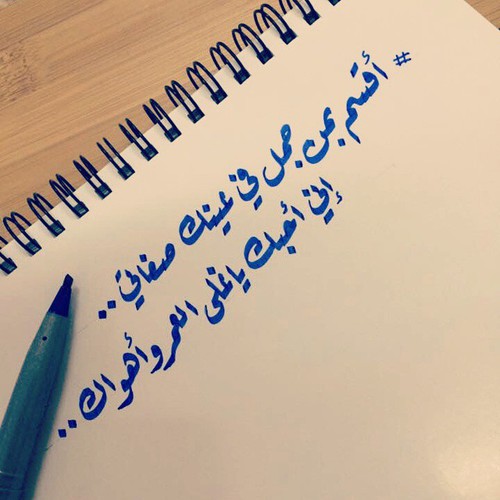 # أقسم بمن جمل في عينك صفاتي..
إني أحبك ياغلى العمر وأهواك..